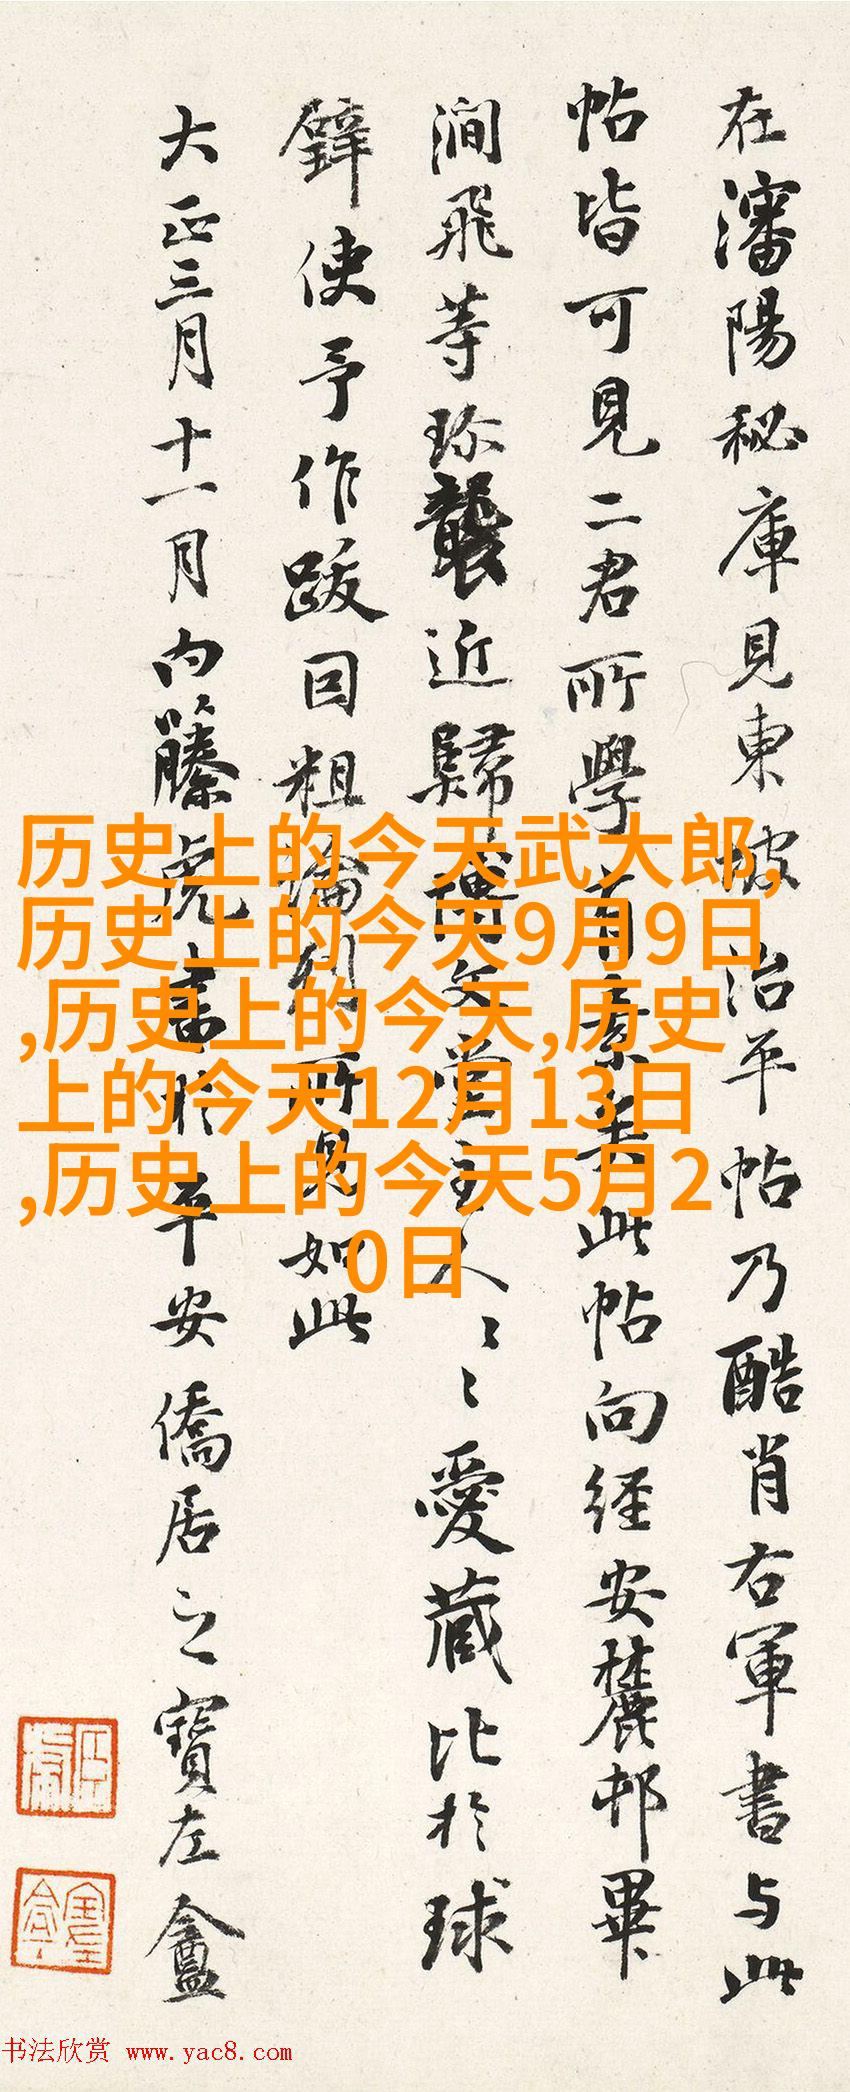 在瀋陽秘庫見東坡治平帖乃酷肖右軍書与此
帖皆可見二君所學有素矣此帖向経安麓邨畢
澗飛等珎襲近歸博文堂主人〻〻愛蔵比於球
鐸使予作跋因粗論列所見如此
大正三月十一月内藤虎書於平安僑居之寶左盦
历史上的今天武大郎,
历史上的今天9月9日
,历史上的今天,历史
上的今天12月13日
,历史上的今天5月2
0日
书法欣赏 www.yac8.com